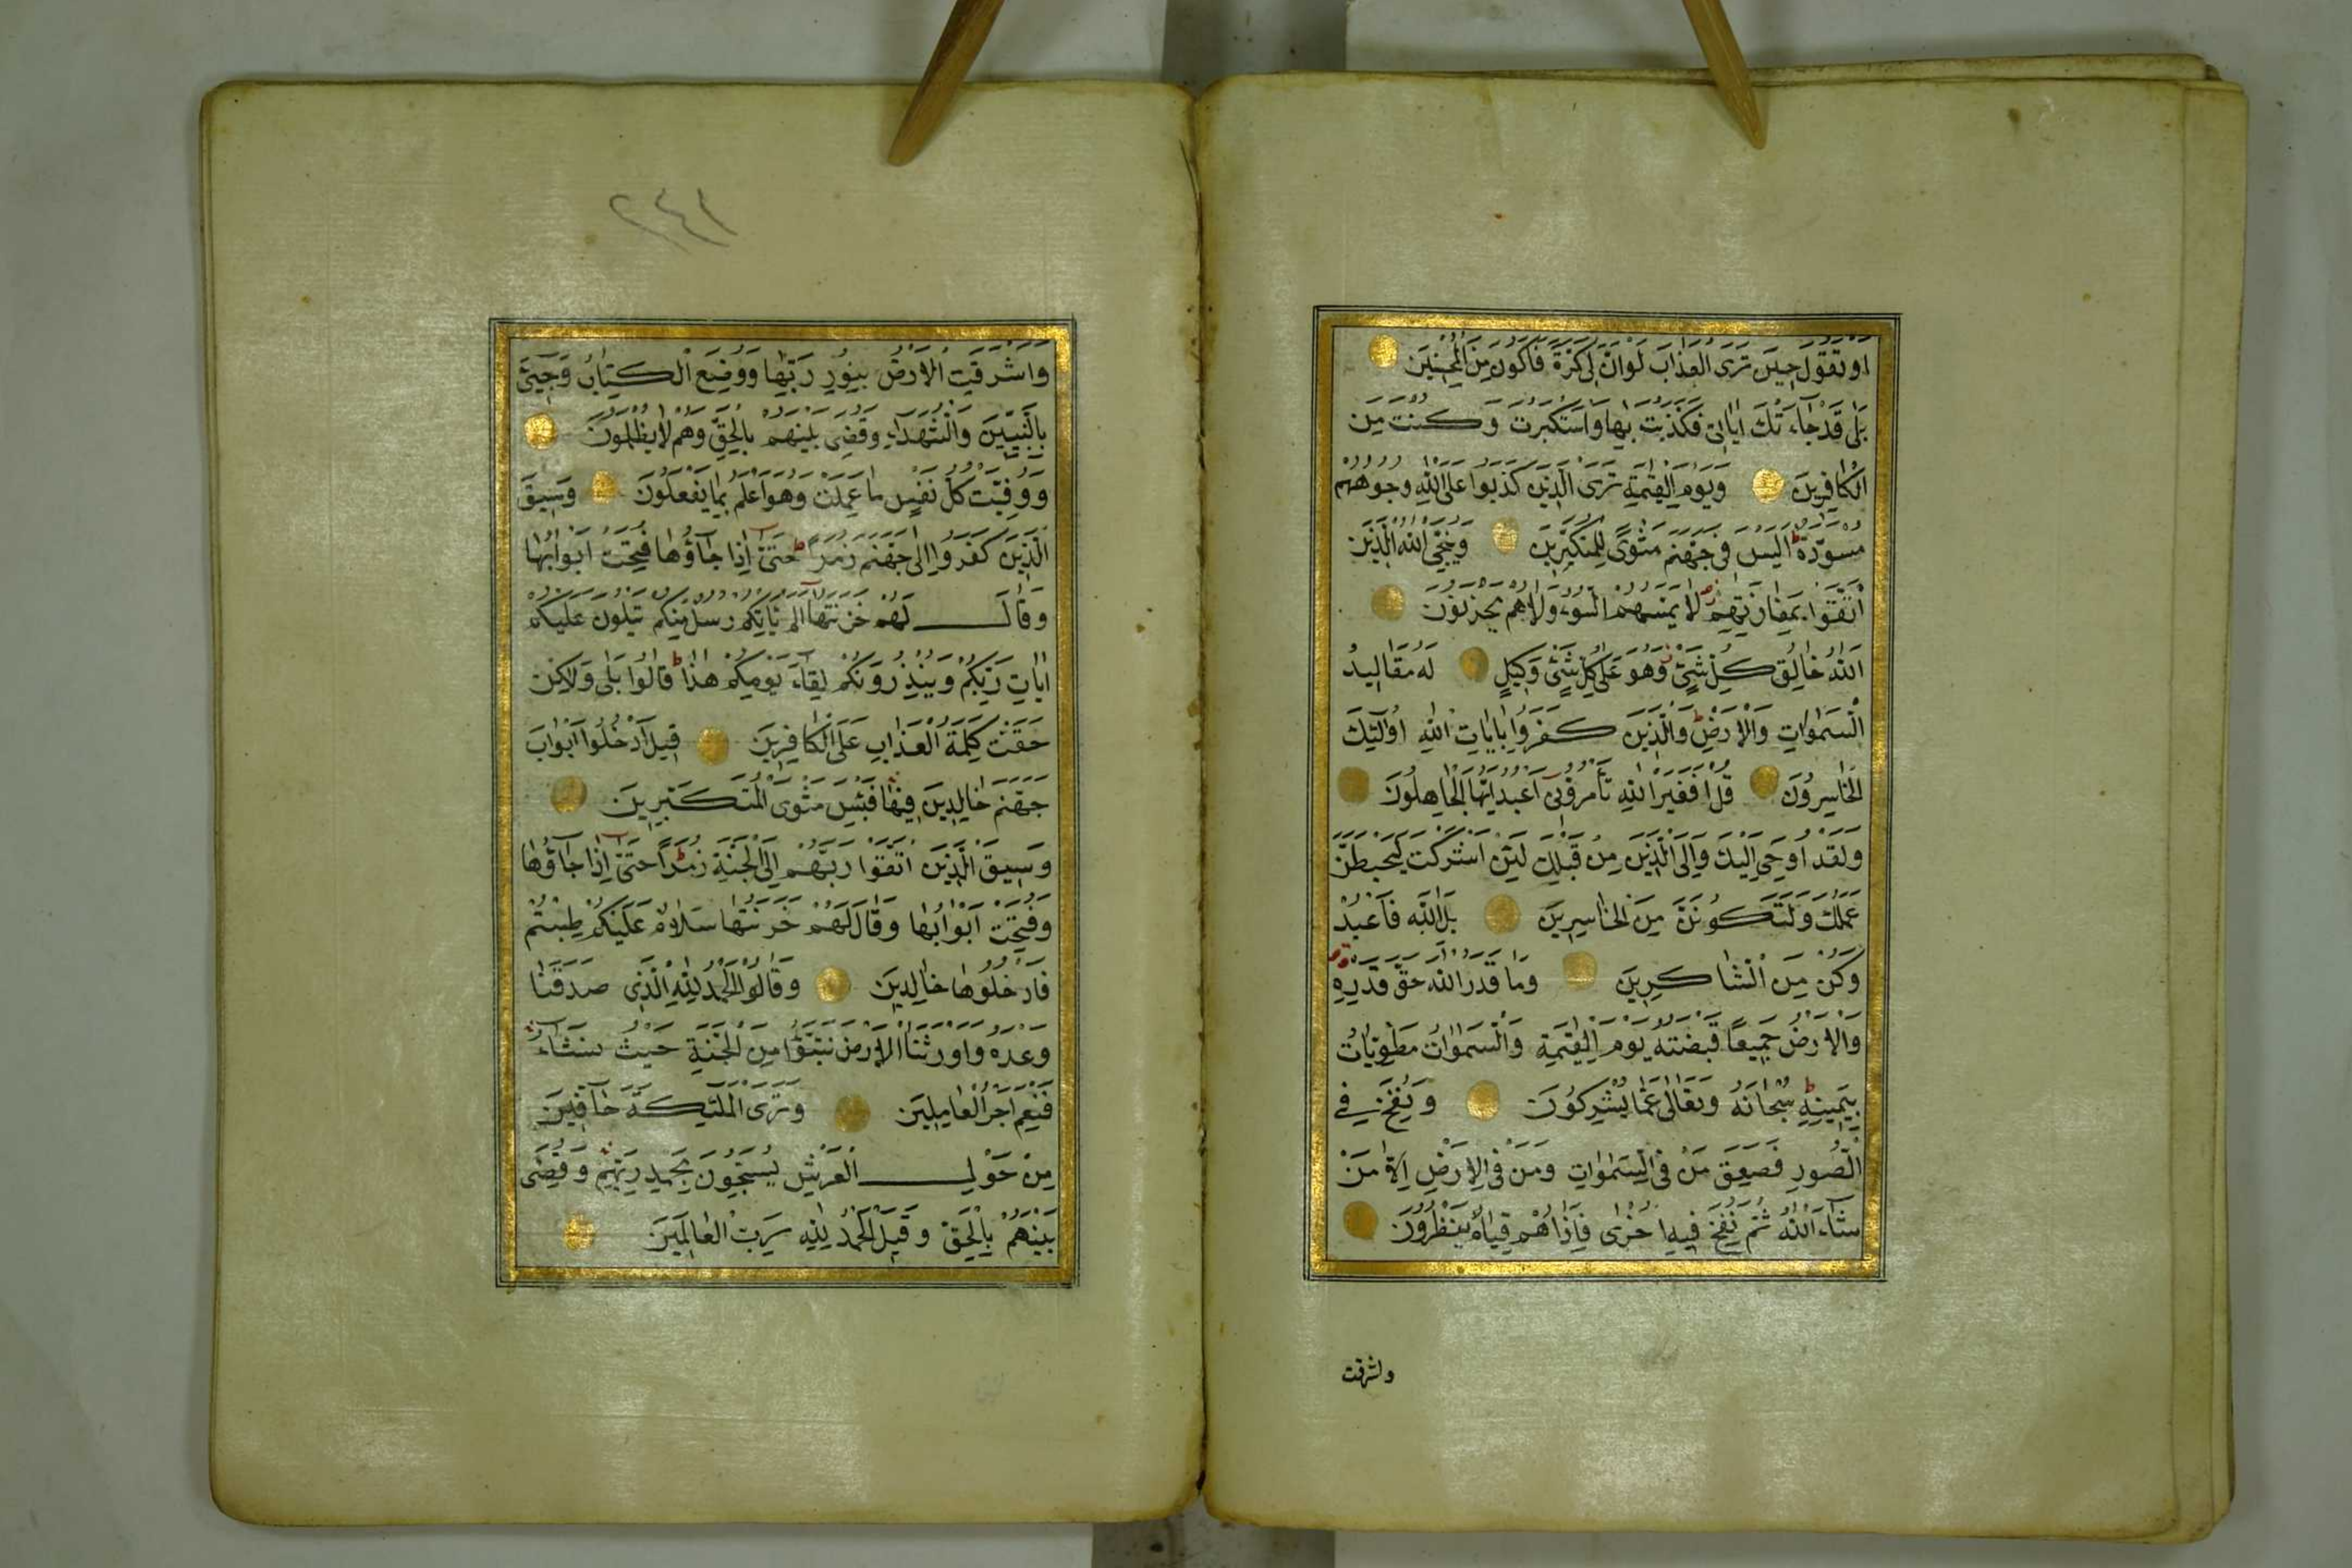 اَوْ تَقُولَ حِينَ تَرَى الْعَذَابَ لَوْ اَنَّ لِى كَرَّةً فَاَكُونَ مِنَ الْمُحْسِنِينَ
بَلٰى قَدْ جَآءَتْكَ اٰيَاتِى فَكَذَّبْتَ بِهَا وَاسْتَكْبَرْتَ وَكُنْتَ مِنَ
الْكَافِرِينَ وَيَوْمَ الْقِيٰمَةِ تَرَى الَّذِينَ كَذَبُوا عَلَى اللّٰهِ وُجُوهُهُمْ
مُسْوَدَّةٌ ط اَلَيْسَ فِى جَهَنَّمَ مَثْوًى لِلْمُتَكَبِّرِينَ وَيُنَجِّى اللّٰهُ الَّذِينَ
اتَّقَوْا بِمَفَازَتِهِمْ لَا يَمَسُّهُمُ السُّوءُ وَلَا هُمْ يَحْزَنُونَ
اَللّٰهُ خَالِقُ كُلِّ شَىْءٍ وَهُوَ عَلٰى كُلِّ شَىْءٍ وَكِيلٌ لَهُ مَقَالِيدُ
السَّمٰوَاتِ وَالْاَرْضِ ط وَالَّذِينَ كَفَرُوا بِاٰيَاتِ اللّٰهِ اُولٰٓئِكَ
الْخَاسِرُونَ قُلْ اَفَغَيْرَ اللّٰهِ تَأْمُرُوٓنِّى اَعْبُدُ اَيُّهَا الْجَاهِلُونَ
وَلَقَدْ اُوحِىَ اِلَيْكَ وَاِلَى الَّذِينَ مِنْ قَبْلِكَ لَئِنْ اَشْرَكْتَ لَيَحْبَطَنَّ
عَمَلُكَ وَلَتَكُونَنَّ مِنَ الْخَاسِرِينَ بَلِ اللّٰهَ فَاعْبُدْ
وَكُنْ مِنَ الشَّاكِرِينَ وَمَا قَدَرُوا اللّٰهَ حَقَّ قَدْرِهِ
وَالْاَرْضُ جَمِيعًا قَبْضَتُهُ يَوْمَ الْقِيٰمَةِ وَالسَّمٰوَاتُ مَطْوِيَّاتٌ
بِيَمِينِهِ ط سُبْحَانَهُ وَتَعَالٰى عَمَّا يُشْرِكُونَ وَنُفِخَ فِى
الصُّورِ فَصَعِقَ مَنْ فِى السَّمٰوَاتِ وَمَنْ فِى الْاَرْضِ اِلَّا مَنْ
شَآءَ اللّٰهُ ثُمَّ نُفِخَ فِيهِ اُخْرٰى فَاِذَا هُمْ قِيَامٌ يَنْظُرُونَ
واشرقت
٢٤١
وَاَشْرَقَتِ الْاَرْضُ بِنُورِ رَبِّهَا وَوُضِعَ الْكِتَابُ وَجِىءَ
بِالنَّبِيِّينَ وَالشُّهَدَآءِ وَقُضِىَ بَيْنَهُمْ بِالْحَقِّ وَهُمْ لَا يُظْلَمُونَ
وَوُفِّيَتْ كُلُّ نَفْسٍ مَا عَمِلَتْ وَهُوَ اَعْلَمُ بِمَا يَفْعَلُونَ وَسِيقَ
الَّذِينَ كَفَرُوا اِلٰى جَهَنَّمَ زُمَرًا ط حَتّٰىٓ اِذَا جَآؤُهَا فُتِحَتْ اَبْوَابُهَا
وَقَالَ لَهُمْ خَزَنَتُهَآ اَلَمْ يَأْتِكُمْ رُسُلٌ مِنْكُمْ يَتْلُونَ عَلَيْكُمْ
اٰيَاتِ رَبِّكُمْ وَيُنْذِرُونَكُمْ لِقَآءَ يَوْمِكُمْ هٰذَا ط قَالُوا بَلٰى وَلٰكِنْ
حَقَّتْ كَلِمَةُ الْعَذَابِ عَلَى الْكَافِرِينَ قِيلَ ادْخُلُوٓا اَبْوَابَ
جَهَنَّمَ خَالِدِينَ فِيهَا فَبِئْسَ مَثْوَى الْمُتَكَبِّرِينَ
وَسِيقَ الَّذِينَ اتَّقَوْا رَبَّهُمْ اِلَى الْجَنَّةِ زُمَرًا ط حَتّٰىٓ اِذَا جَآؤُهَا
وَفُتِحَتْ اَبْوَابُهَا وَقَالَ لَهُمْ خَزَنَتُهَا سَلَامٌ عَلَيْكُمْ طِبْتُمْ
فَادْخُلُوهَا خَالِدِينَ وَقَالُوا الْحَمْدُ لِلّٰهِ الَّذِى صَدَقَنَا
وَعْدَهُ وَاَوْرَثَنَا الْاَرْضَ نَتَبَوَّؤُا مِنَ الْجَنَّةِ حَيْثُ نَشَآءُ
فَنِعْمَ اَجْرُ الْعَامِلِينَ وَتَرَى الْمَلٰٓئِكَةَ حَآفِّينَ
مِنْ حَوْلِ الْعَرْشِ يُسَبِّحُونَ بِحَمْدِ رَبِّهِمْ وَقُضِىَ
بَيْنَهُمْ بِالْحَقِّ وَقِيلَ الْحَمْدُ لِلّٰهِ رَبِّ الْعَالَمِينَ